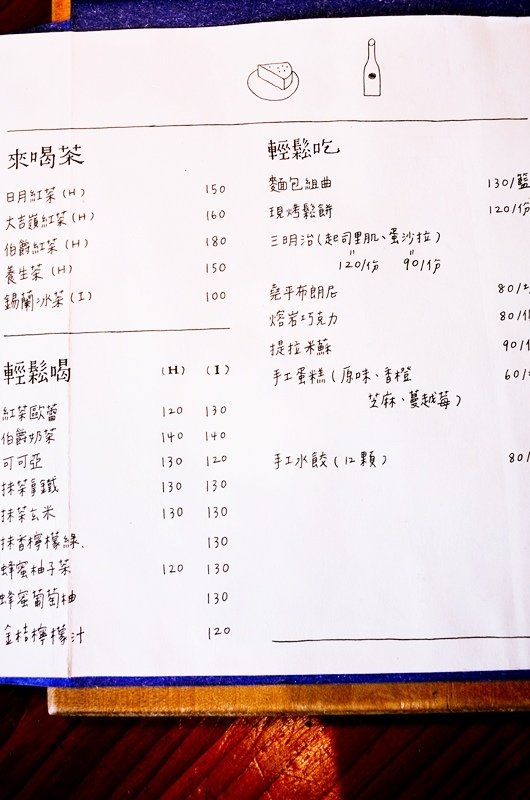 來喝茶
日月紅茶(H) 150
大吉嶺紅茶(H) 160
伯爵紅茶(H) 180
養生茶(H) 150
錫蘭冰茶(I) 100
輕鬆喝 (H) (I)
紅茶歐蕾 120 130
伯爵奶茶 140 140
可可亞 130 120
抹茶拿鐵 130 130
抹茶玄米 130 130
抹香檸檬綠 130
蜂蜜柚子茶 120 130
蜂蜜葡萄柚 130
金桔檸檬汁 120
輕鬆吃
麵包組曲 130/籃
現烤鬆餅 120/份
三明治(起司里肌、蛋沙拉)
120/份 90/份
堯平布朗尼 80/
熔岩巧克力 80/
提拉米蘇 90/
手工蛋糕(原味、香橙 60/
芝麻、蔓越莓)
手工水餃(12顆) 80/